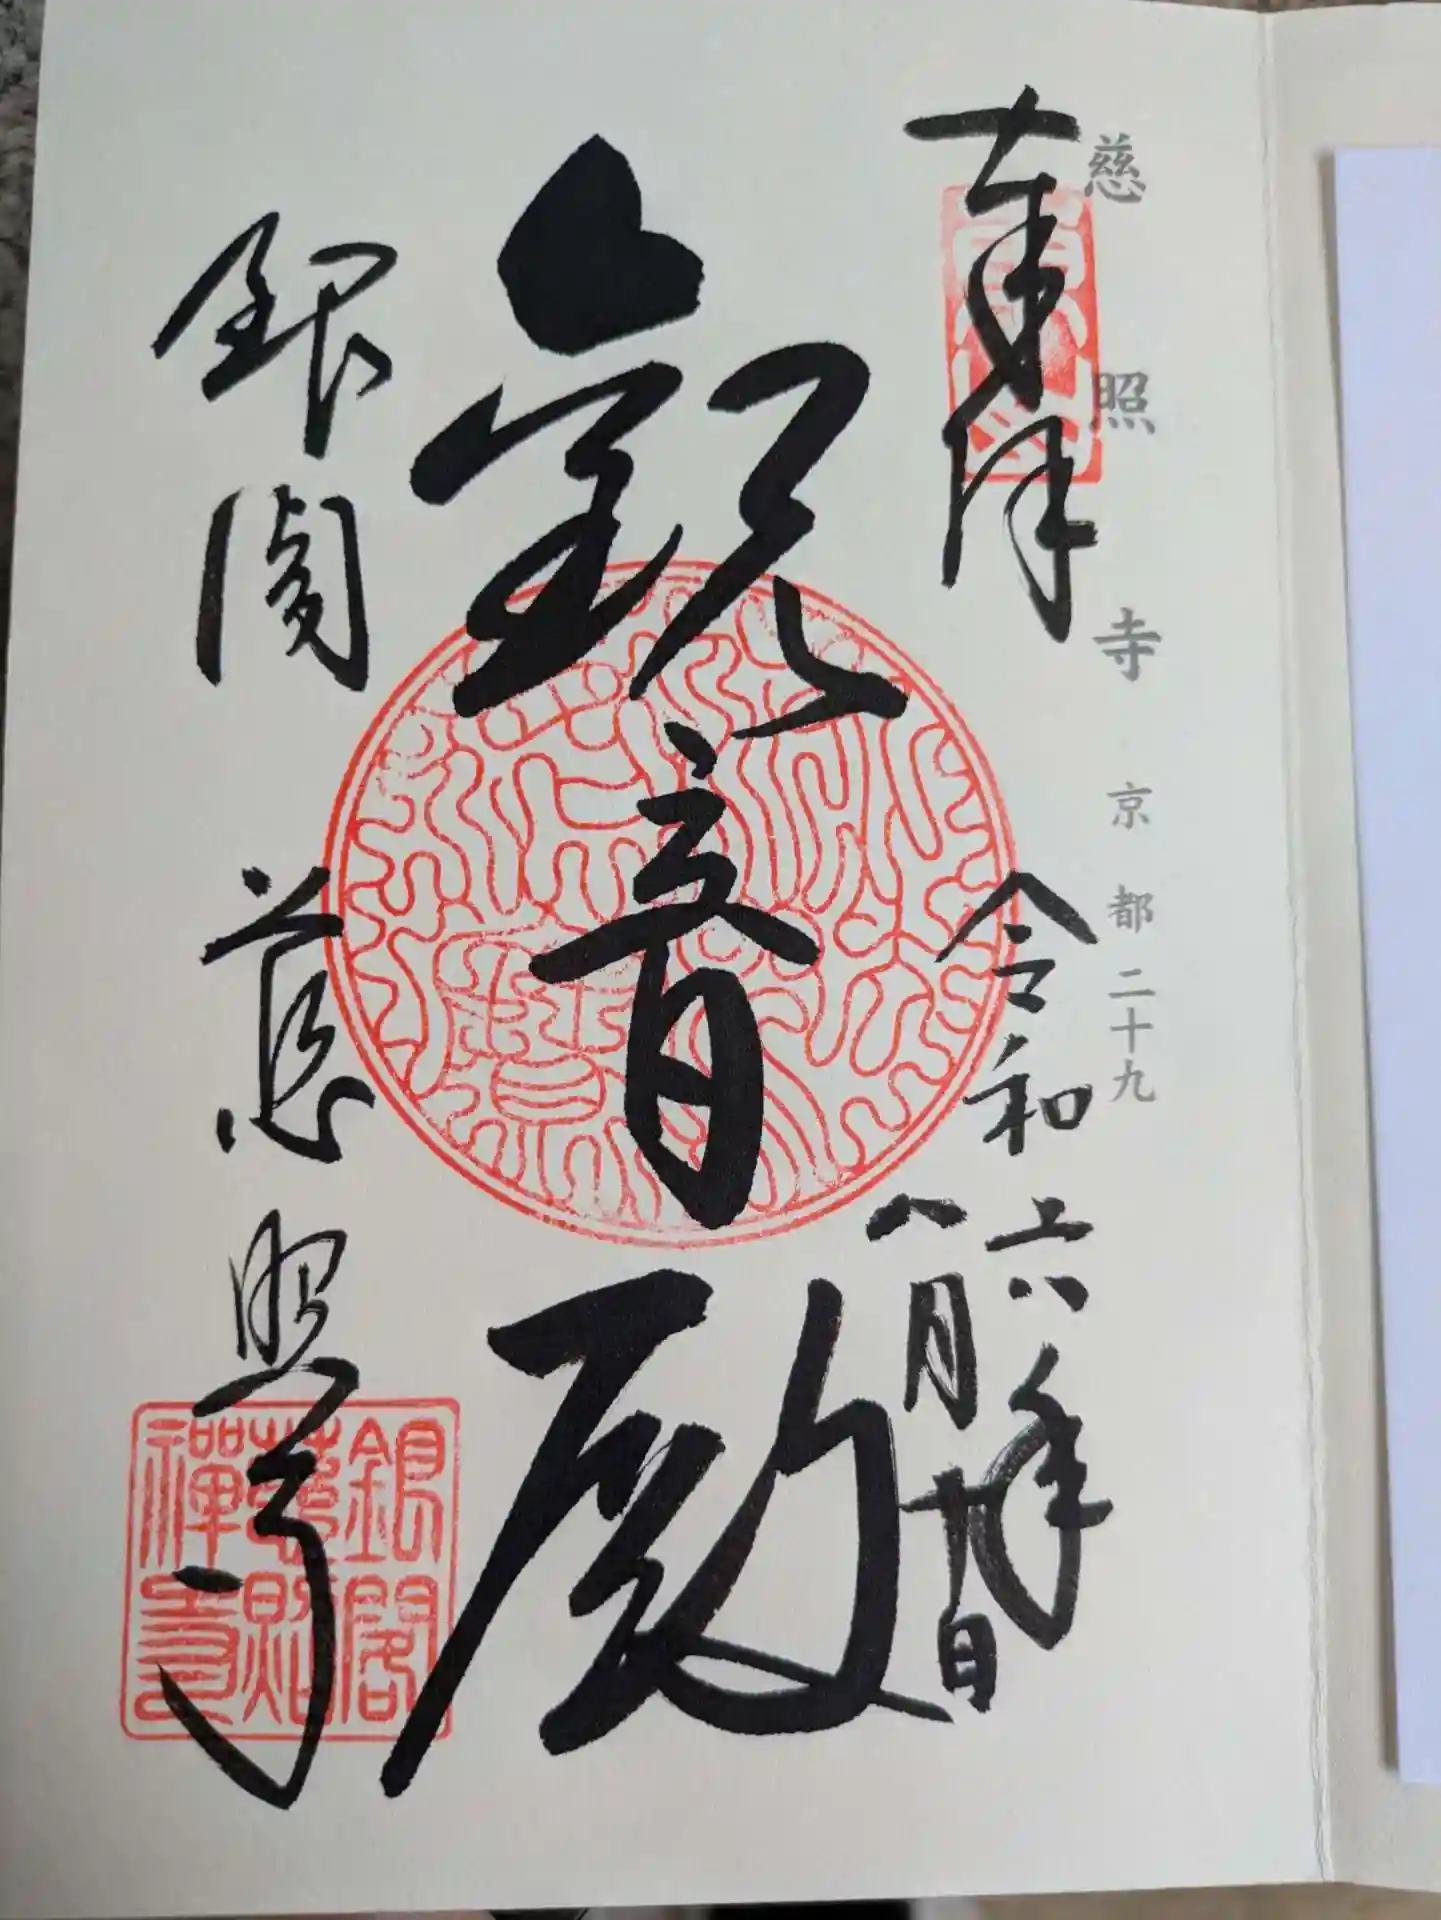 慈照寺 京都二十九
奉拝
令和六年
八月十九日
觀音殿
銀閣 慈照寺
銀閣
慈照
禪寺